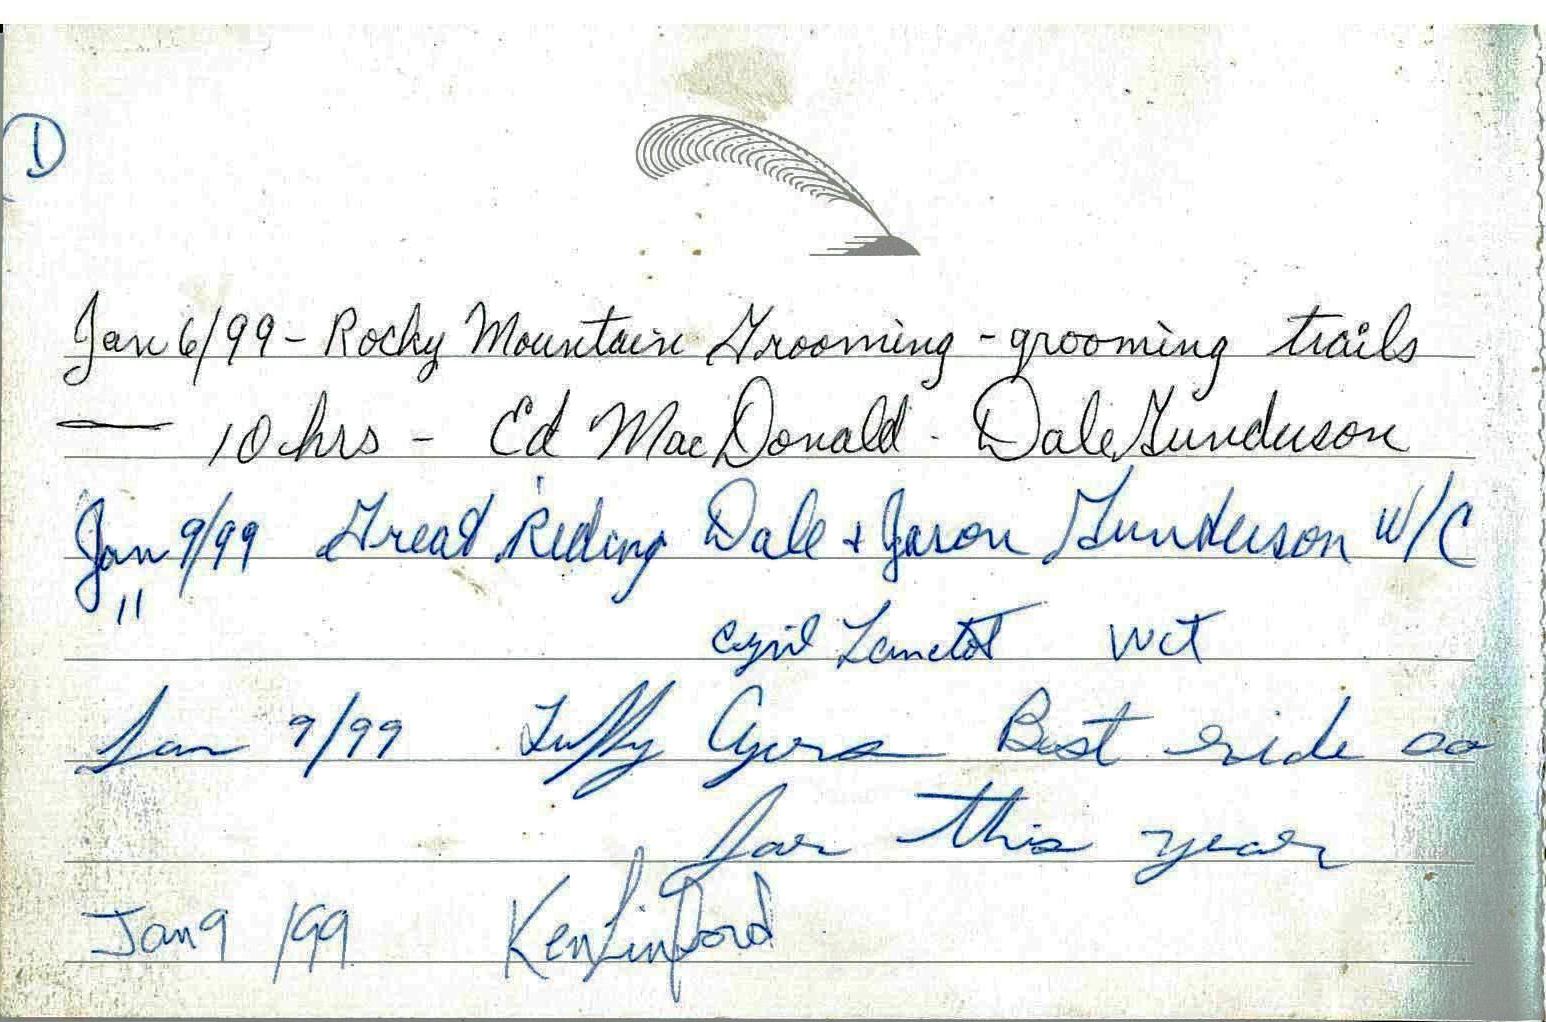 D
Jan 6/99 - Rocky Mountain Grooming - grooming trails
— 10 hrs - Ed MacDonald - Dale Gunderson
Jan 9/99 Great Riding Dale + Jason Gunderson W/C
"
Cyril Lanctot WCT
Jan 9/99 Tuffy Ayers Best ride so
far this year
Jan 9/99 Ken Linford